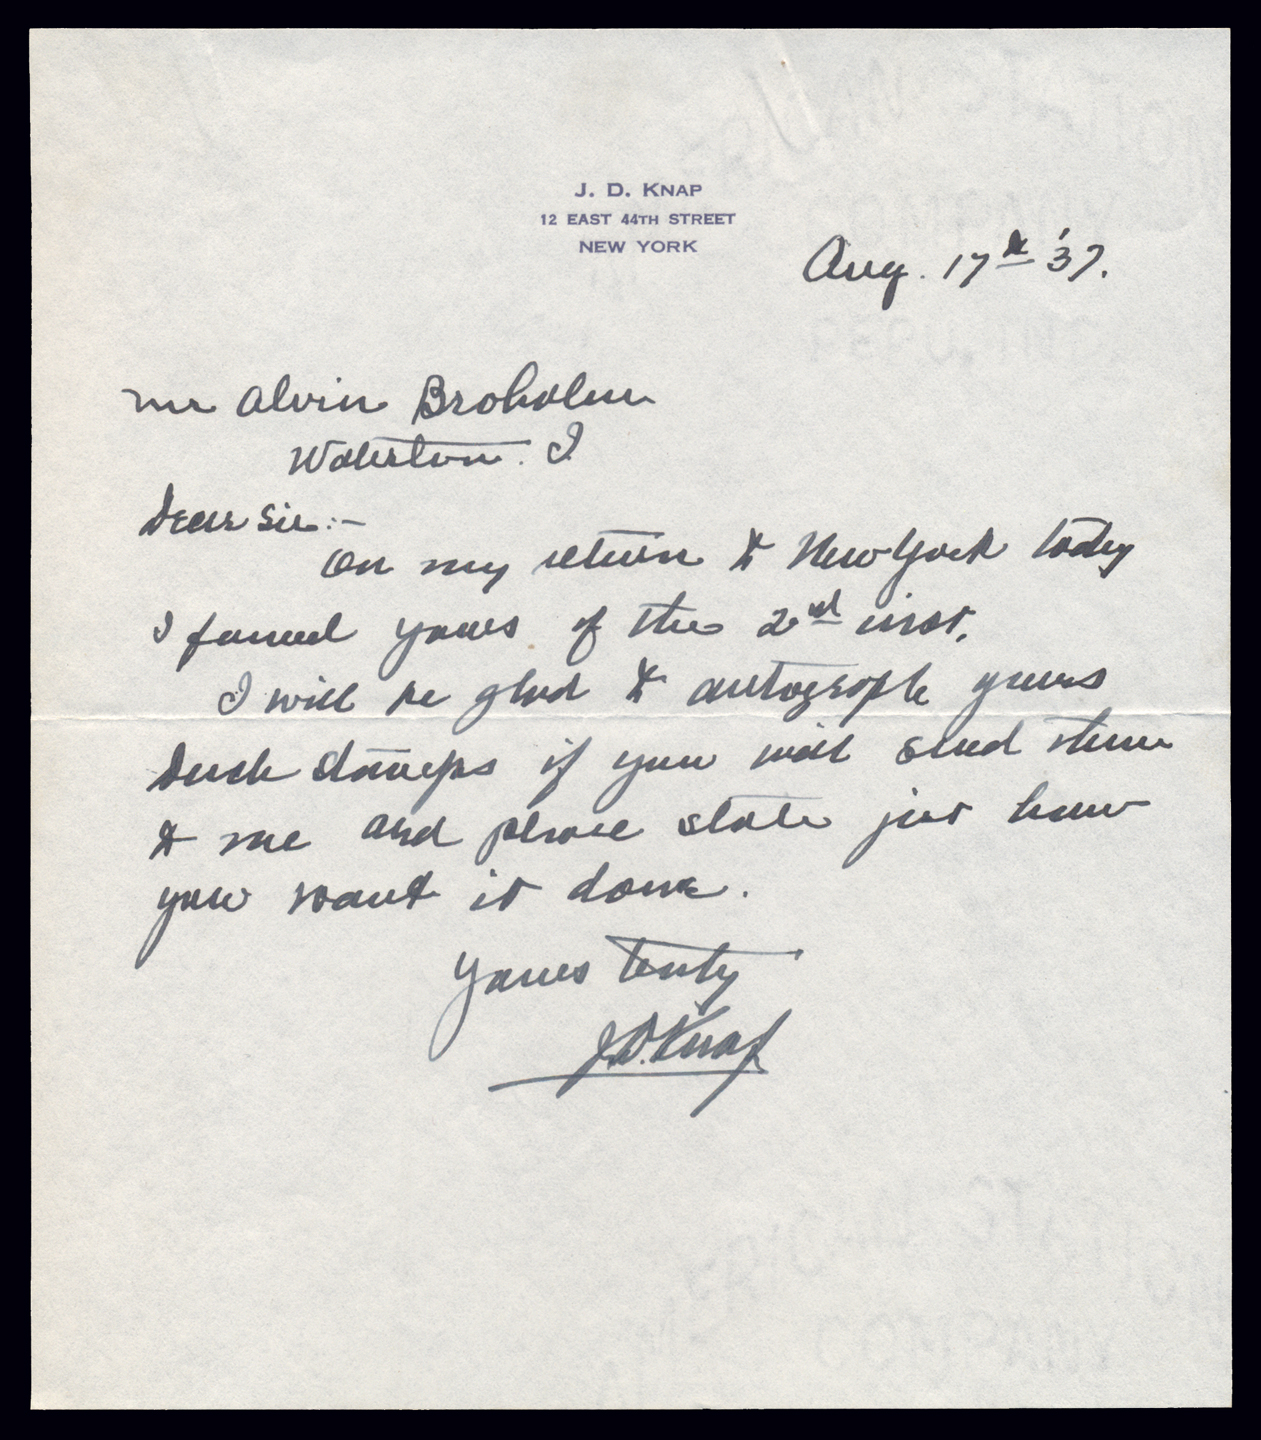 J. D. KNAP
12 EAST 44TH STREET
NEW YORK
Aug. 17th '37.
Mr Alvin Broholm
Watertown. I
Dear Sir:-
On my return to New York today
I found yours of the 2nd inst.
I will be glad to autograph yours
Duck Stamps if you will send them
to me and please state just how
you want it done.
Yours truly
J.D. Knap